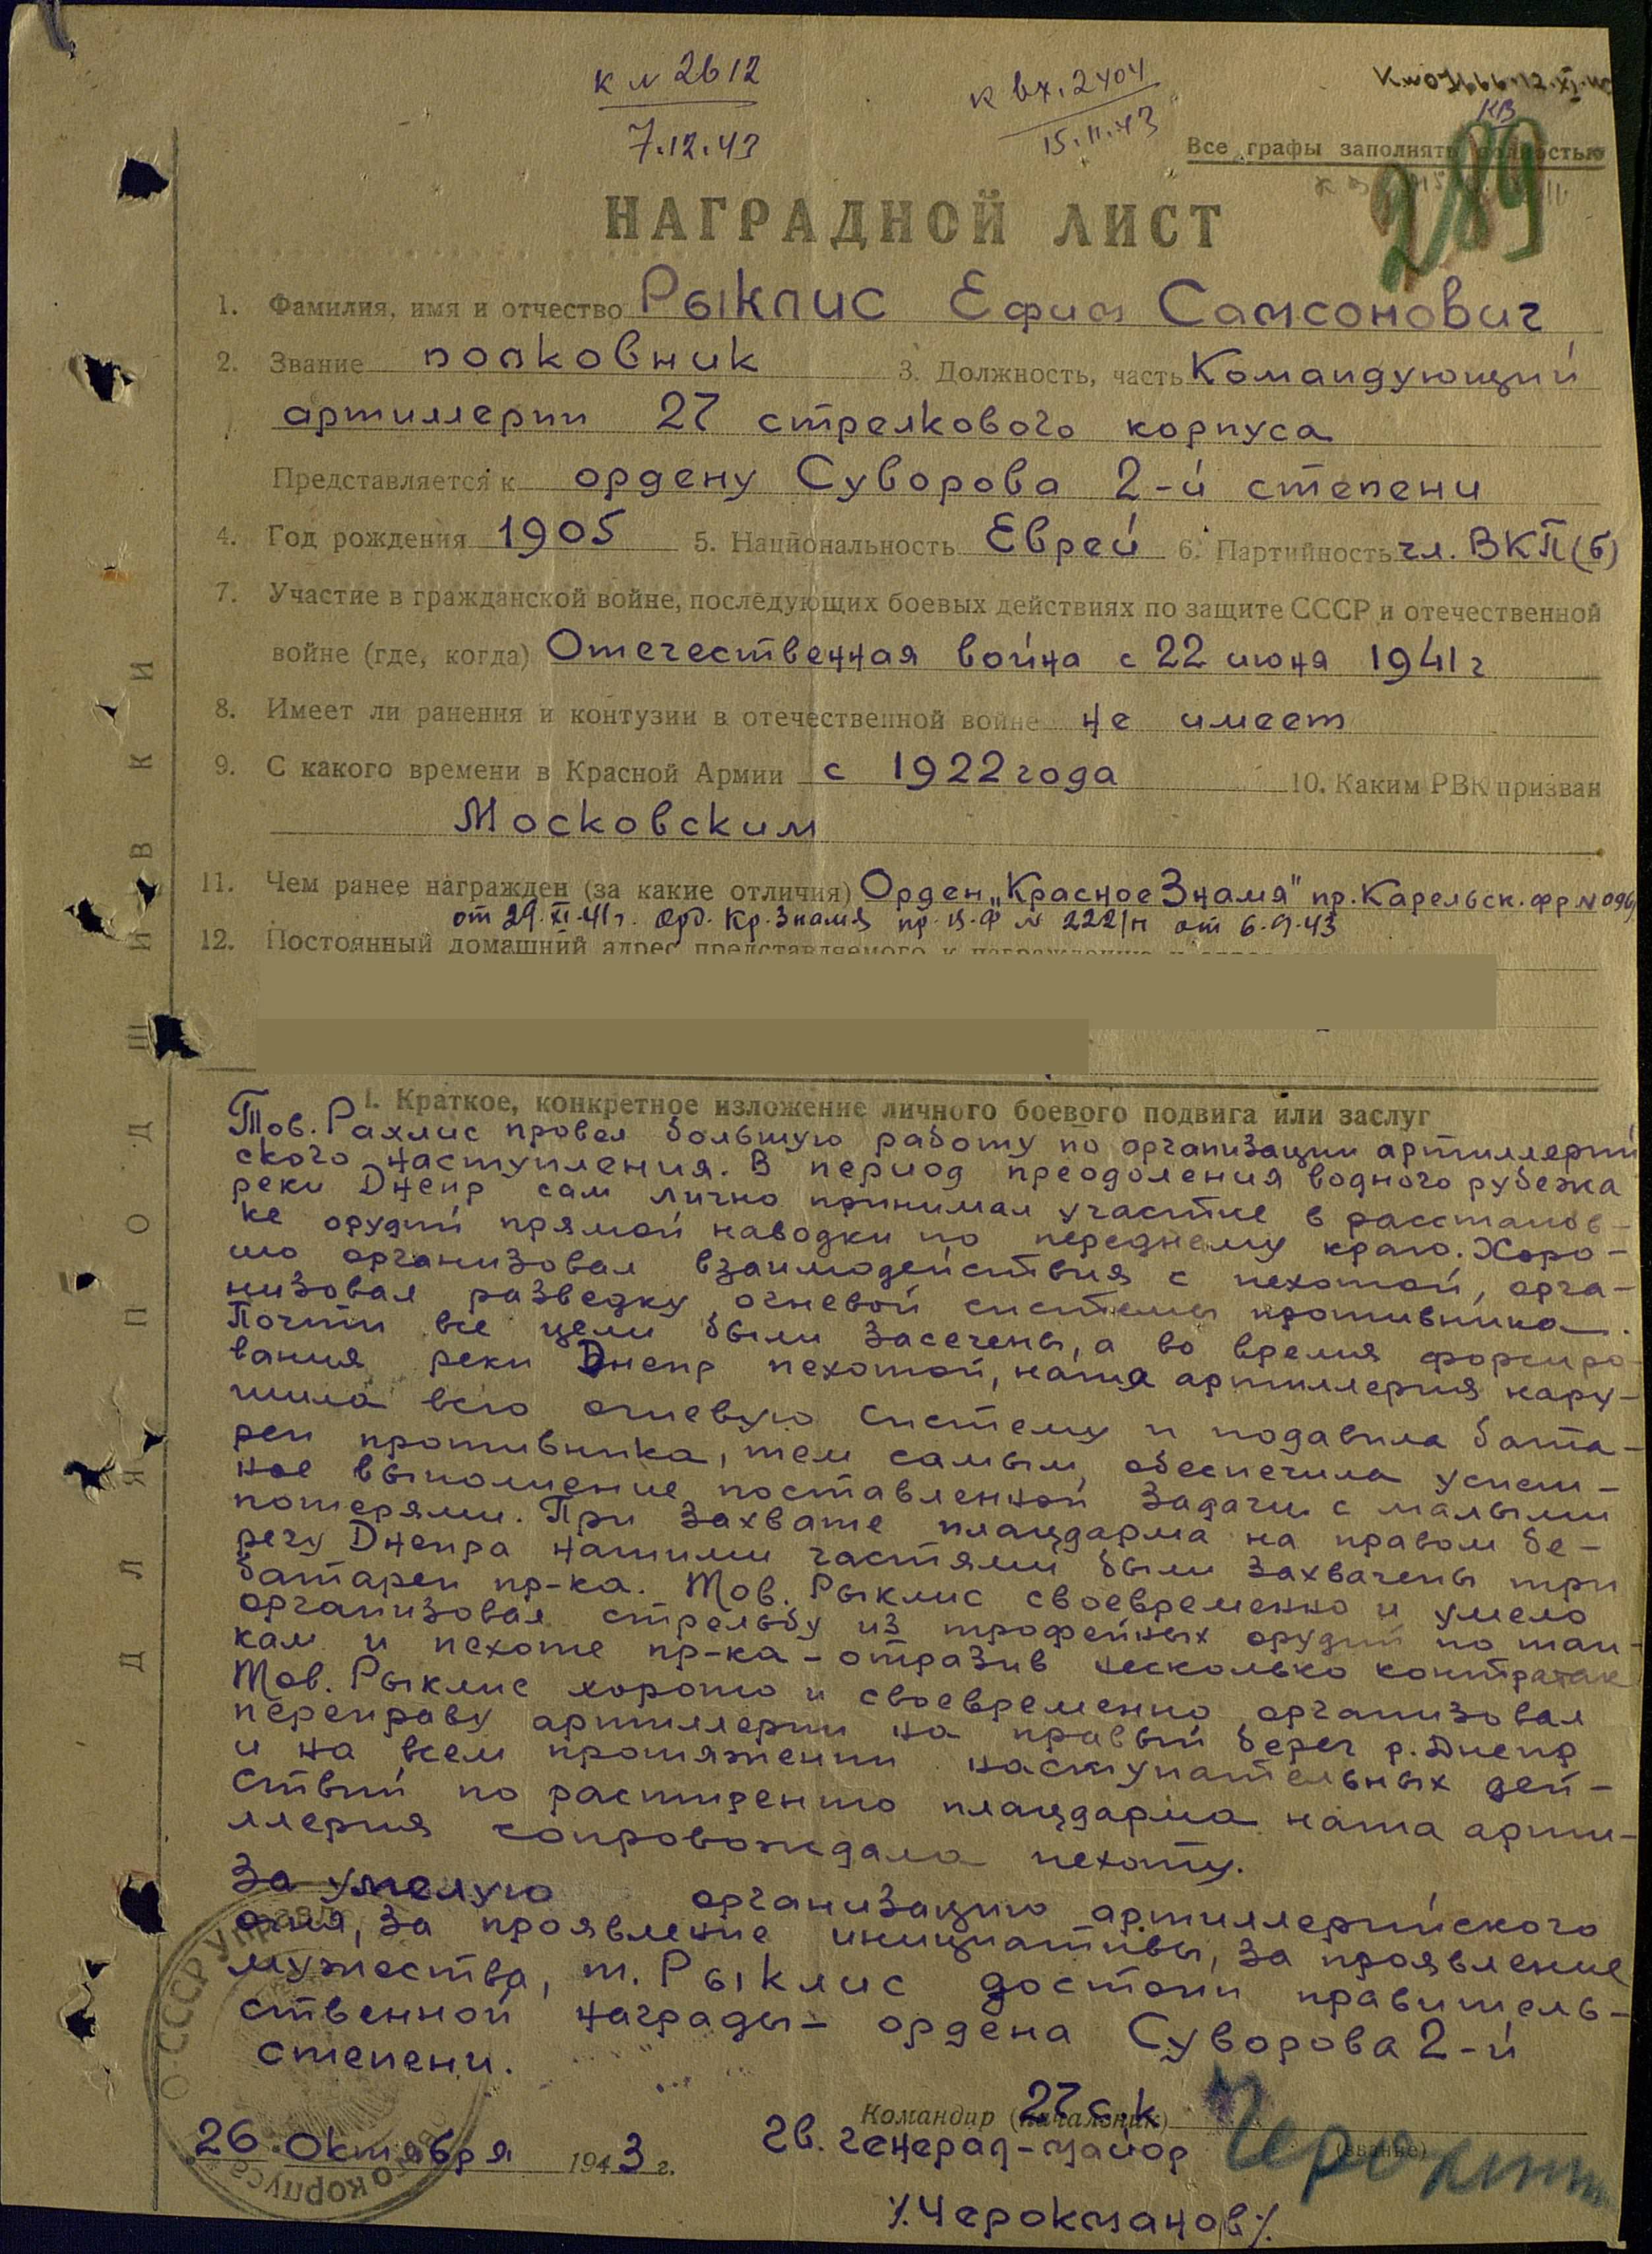 к № 2612
7.12.43
к вх. 2404
15.11.43
КВ
Все графы заполнять полностью
289
НАГРАДНОЙ ЛИСТ
1. Фамилия, имя и отчество Рыклис Ефим Самсонович
2. Звание полковник 3. Должность, часть Командующий
артиллерии 27 стрелкового корпуса
Представляется к ордену Суворова 2-й степени
4. Год рождения 1905 5. Национальность Еврей 6. Партийность чл. ВКП(б)
7. Участие в гражданской войне, последующих боевых действиях по защите СССР и отечественной
войне (где, когда) Отечественная война с 22 июня 1941 г
8. Имеет ли ранения и контузии в отечественной войне не имеет
9. С какого времени в Красной Армии с 1922 года 10. Каким РВК призван
Московским
11. Чем ранее награжден (за какие отличия) Орден „Красное Знамя" пр. Карельск. фр №
от 29.XI.41 г. Орд. Кр. Знамя пр. В.Ф № 222/н от 6.9.43
12. Постоянный домашний адрес представляемого к награждению и
ДЛЯ ПОДШИВКИ
I. Краткое, конкретное изложение личного боевого подвига или заслуг
Тов. Рахлис провел большую работу по организации артиллерий
ского наступления. В период преодоления водного рубежа
реки Днепр сам лично принимал участие в расстанов-
ке орудий прямой наводки по переднему краю. Хоро-
шо организовал взаимодействия с пехотой, орга-
низовал разведку огневой системы противника.
Почти все цели были засечены, а во время форсиро-
вания реки Днепр пехотой, наша артиллерия нару-
шила всю огневую систему и подавила бата-
реи противника, тем самым, обеспечила успеш-
ное выполнение поставленной задачи с малыми
потерями. При захвате плацдарма на правом бе-
регу Днепра нашими частями были захвачены три
батареи пр-ка. Тов. Рыклис своевременно и умело
организовал стрельбу из трофейных орудий по тан-
кам и пехоте пр-ка - отразив несколько контратак
Тов. Рыклис хорошо и своевременно организовал
переправу артиллерии на правый берег р. Днепр
и на всем протяжении наступательных дей-
ствий по расширению плацдарма наша арти-
ллерия сопровождала пехоту.
За умелую организацию артиллерийского
огня, за проявление инициативы, за проявление
мужества, т. Рыклис достоин правитель-
ственной награды - ордена Суворова 2-й
степени.
Командир (начальник) 27 с.к.
26 Октября 1943 г. Гв. генерал-майор (звание)
/Черокманов/
О СССР Управл
корпуса